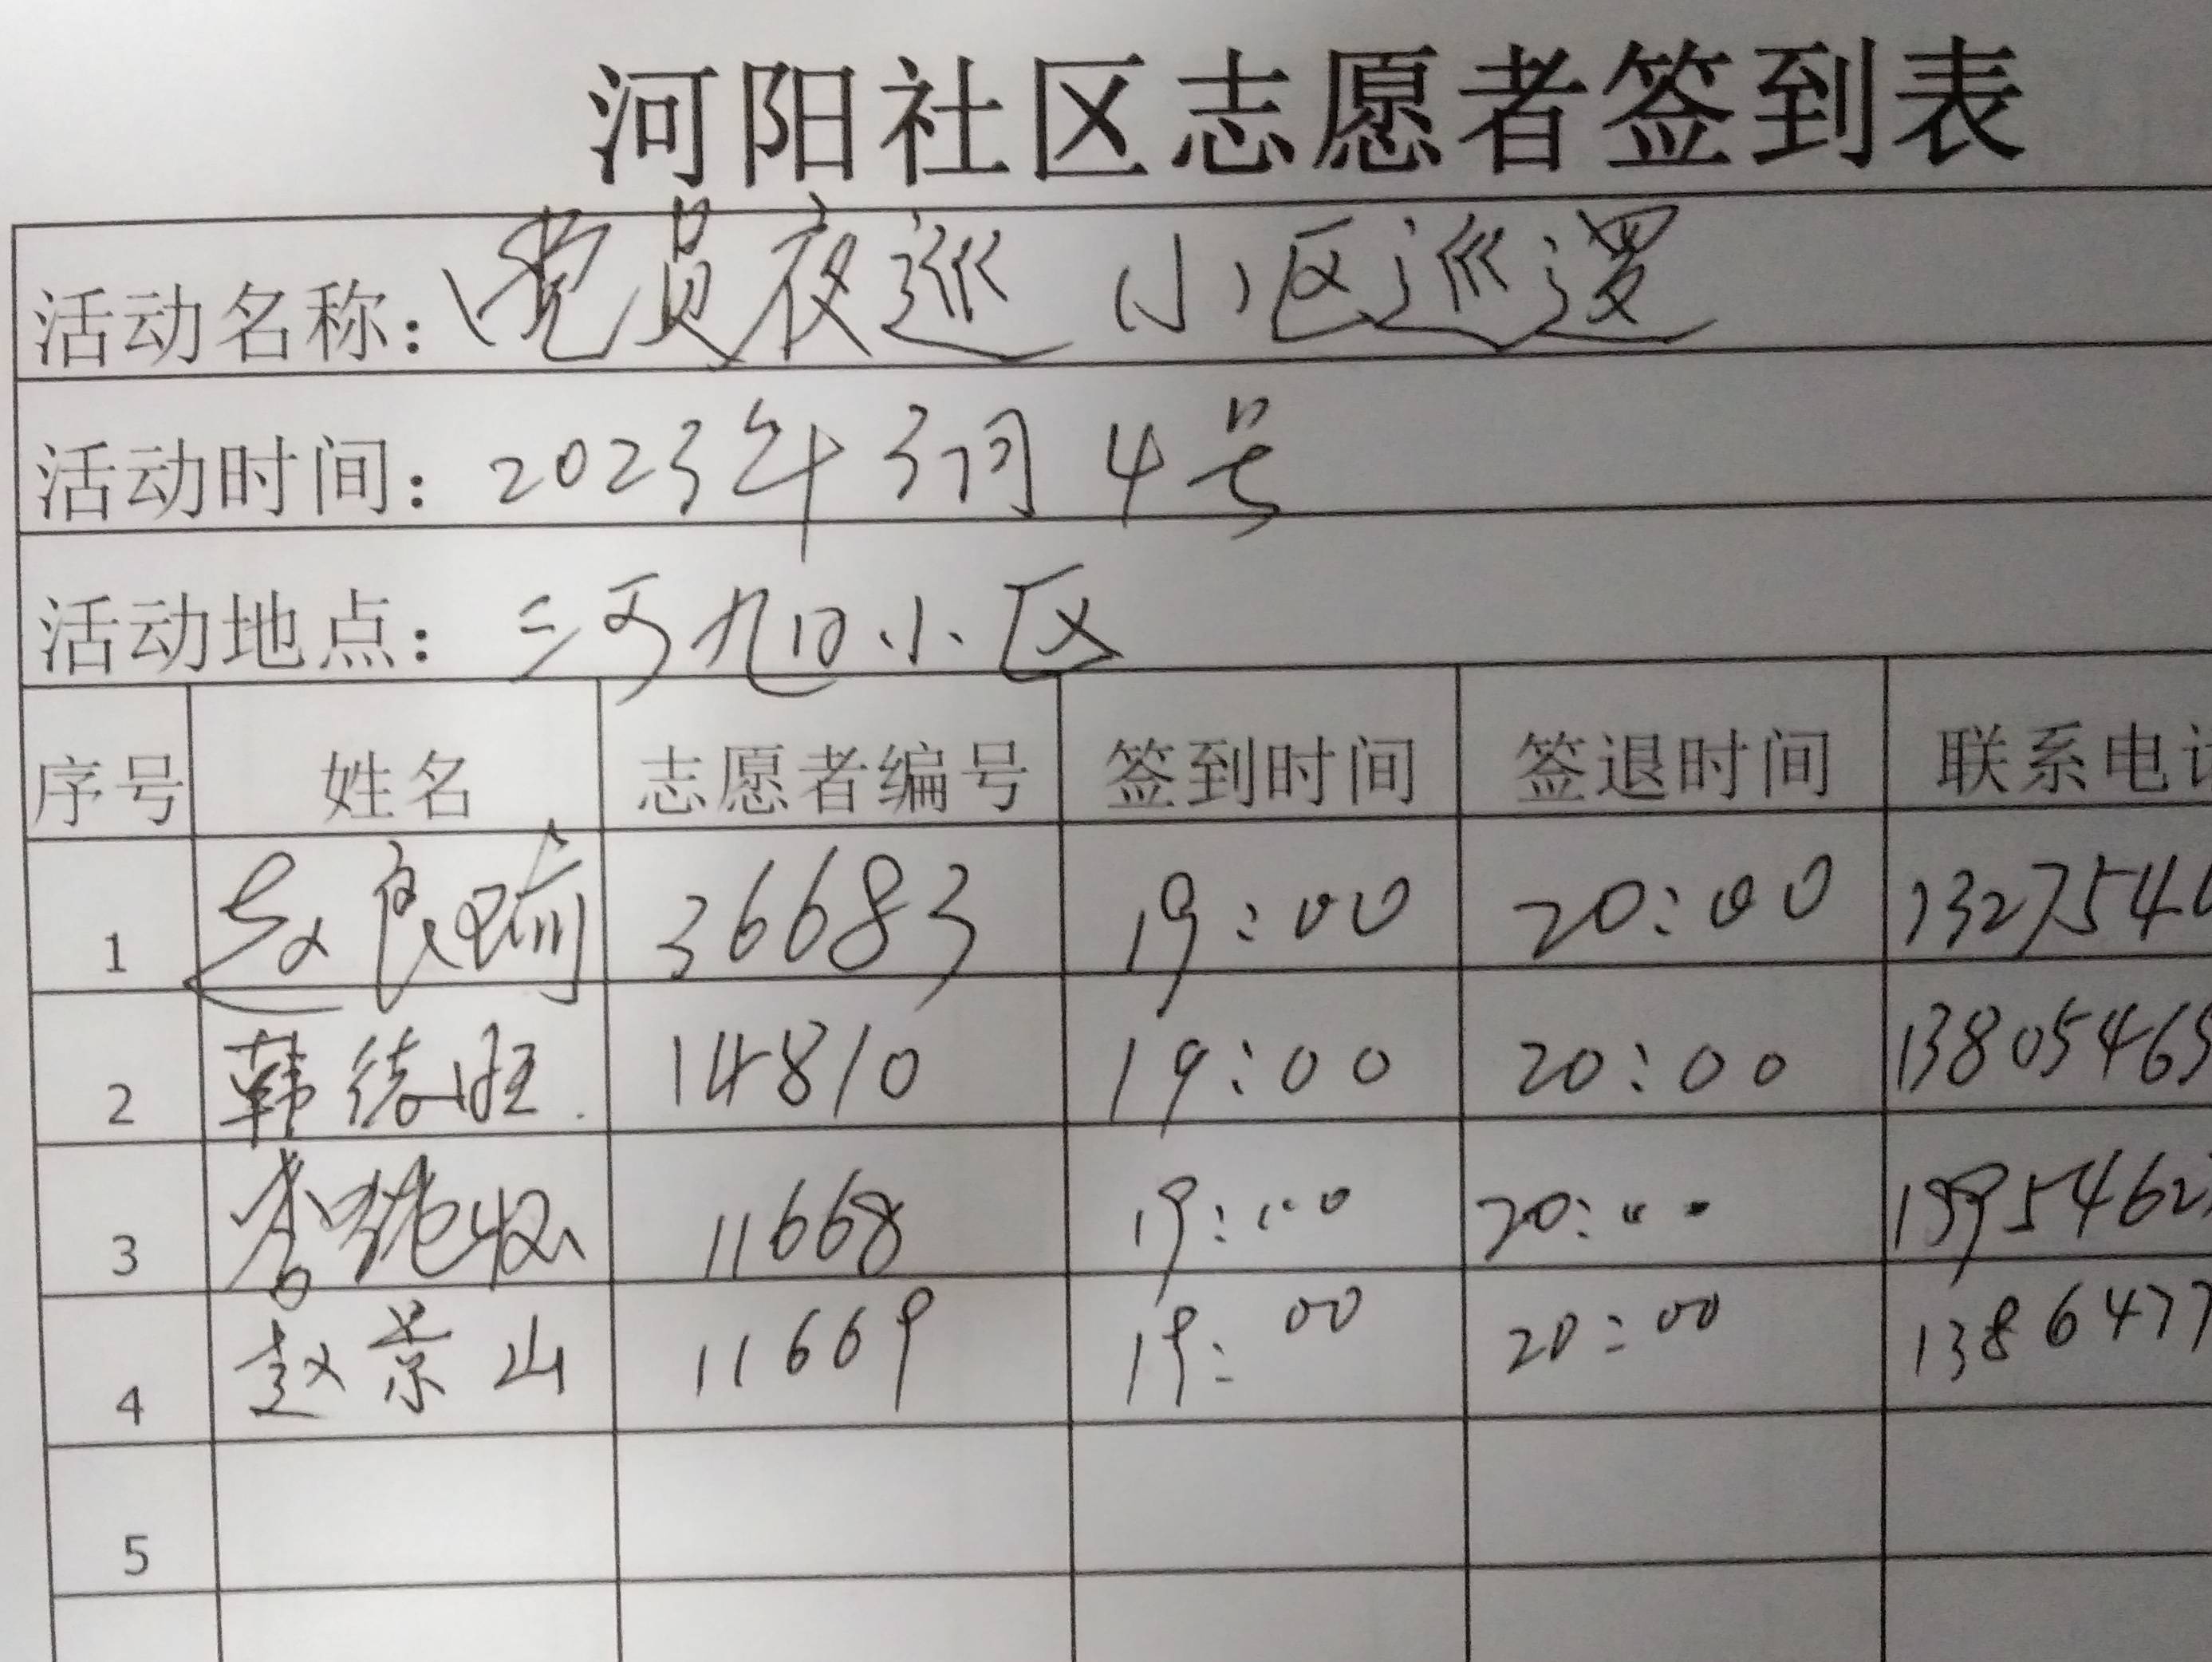 河阳社区志愿者签到表
活动名称：党员夜巡 小区巡逻
活动时间：2023年3月4号
活动地点：三 九 小区
序号 姓名 志愿者编号 签到时间 签退时间 联系电
1 赵良 36683 19:00 20:00 1327546
2 韩德旺 14810 19:00 20:00 13805465
3 李 11668 19:00 20:00 1995462
4 赵景山 11669 19:00 20:00 1386477
5